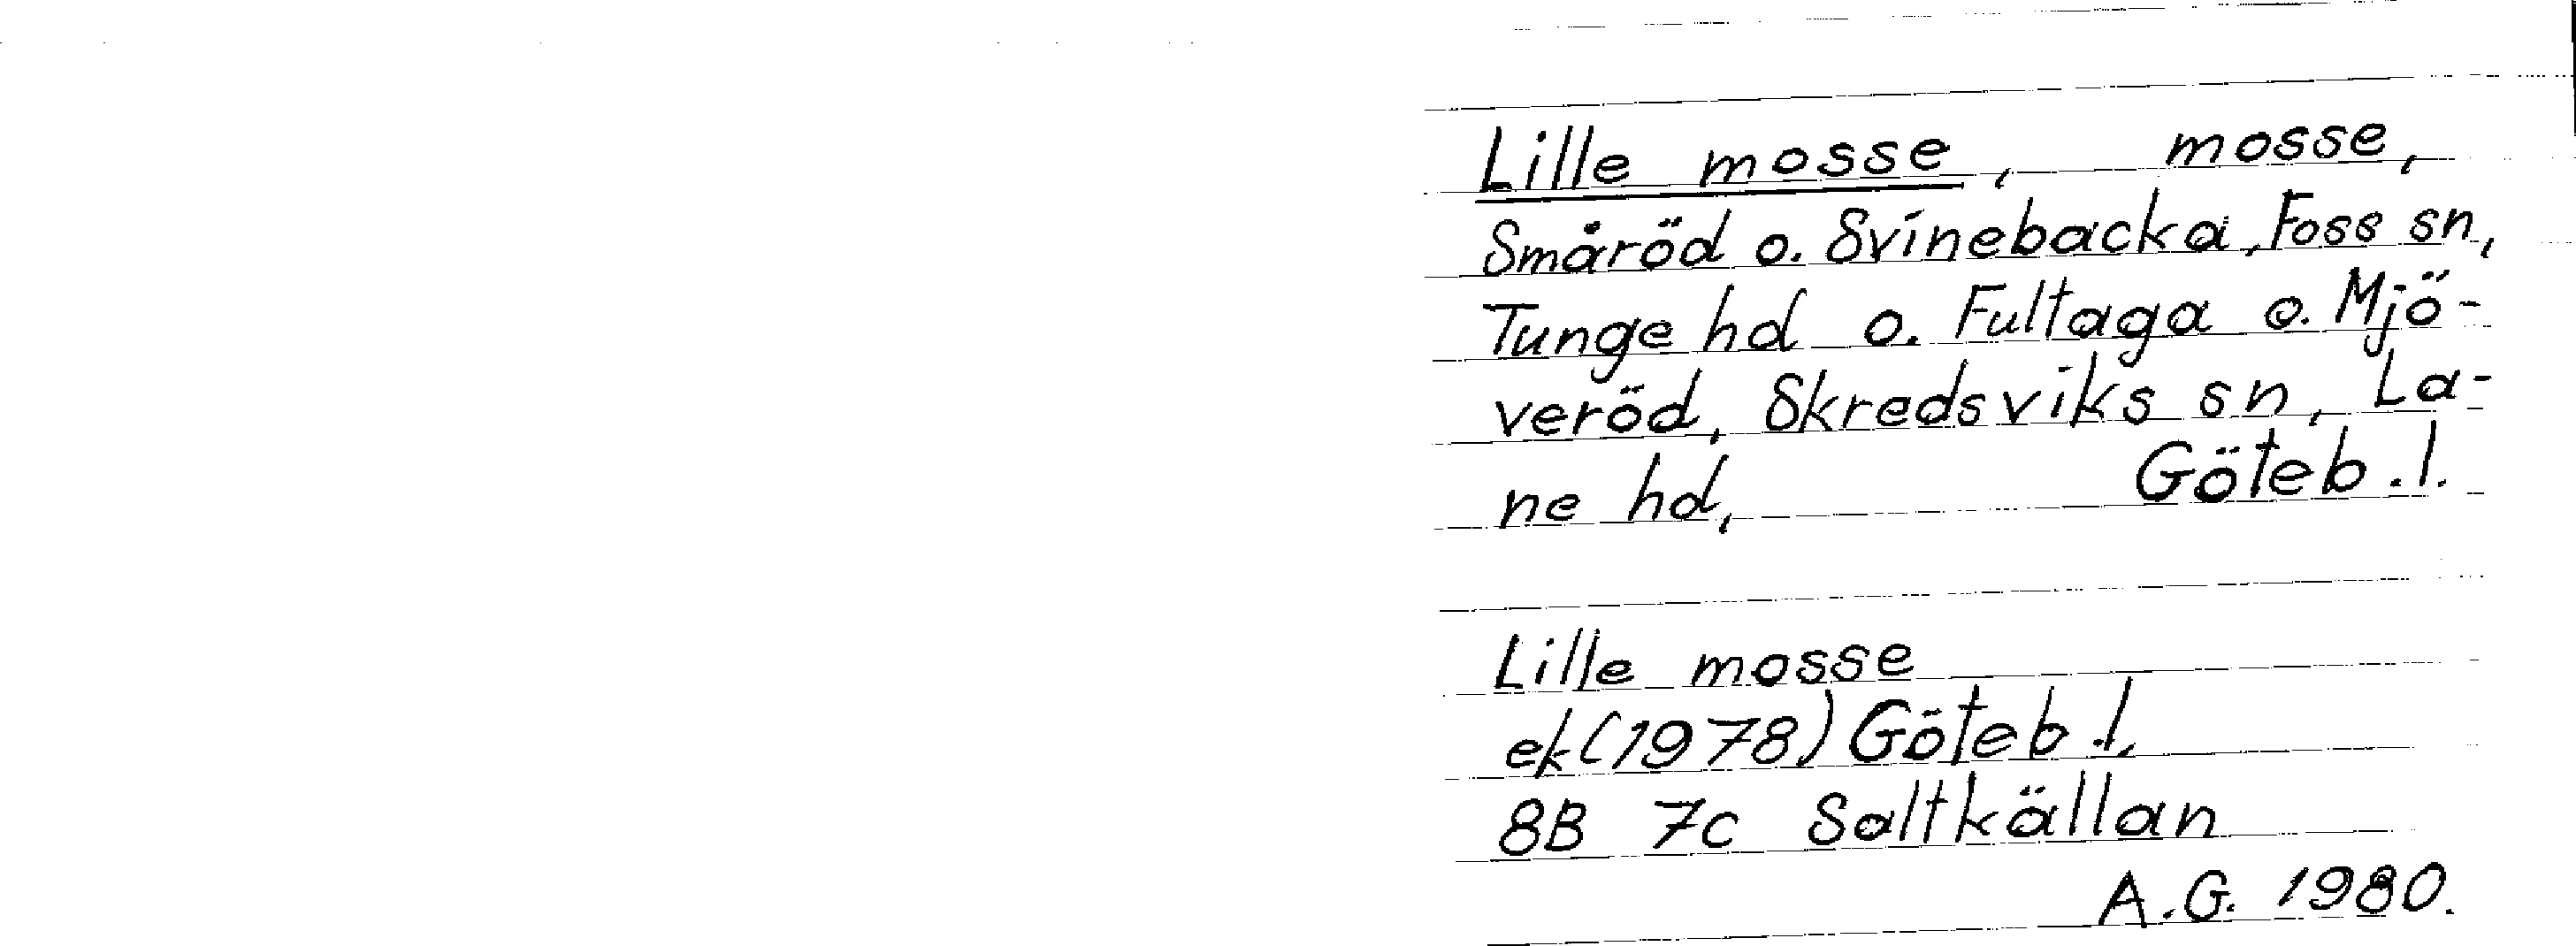 Lille mosse, mosse,
Småröd o. Svinebacka, Foss sn,
Tunge hd o. Fultaga o. Mjö-
veröd, Skredsviks sn, La-
ne hd, Göteb.l.
Lille mosse
ek(1978) Göteb.l.
8B 7c Saltkällan
A.G. 1980.